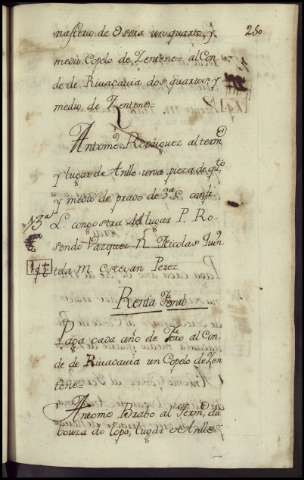 nasterio de Osera un quarto, y
medio Copelo de Zenteno = al Con
de de Rivaravia dos quartos, y
medio de Zenteno =
250
Antonio Rodriguez al term.
y lugar de Anlle una pieza de
y medio de prado de 3.ª
L. angostra del lugar P. Ro
sendo Vazquez N. Nicolas Quin
tela M. Estevan Perez
Renta Foral
Paga cada año de Foro al Con
de de Rivaravia un Copelo de Zen
teno =
Antonio Pedabo al Term. da
bouza do Lopo, lugar de Anlle